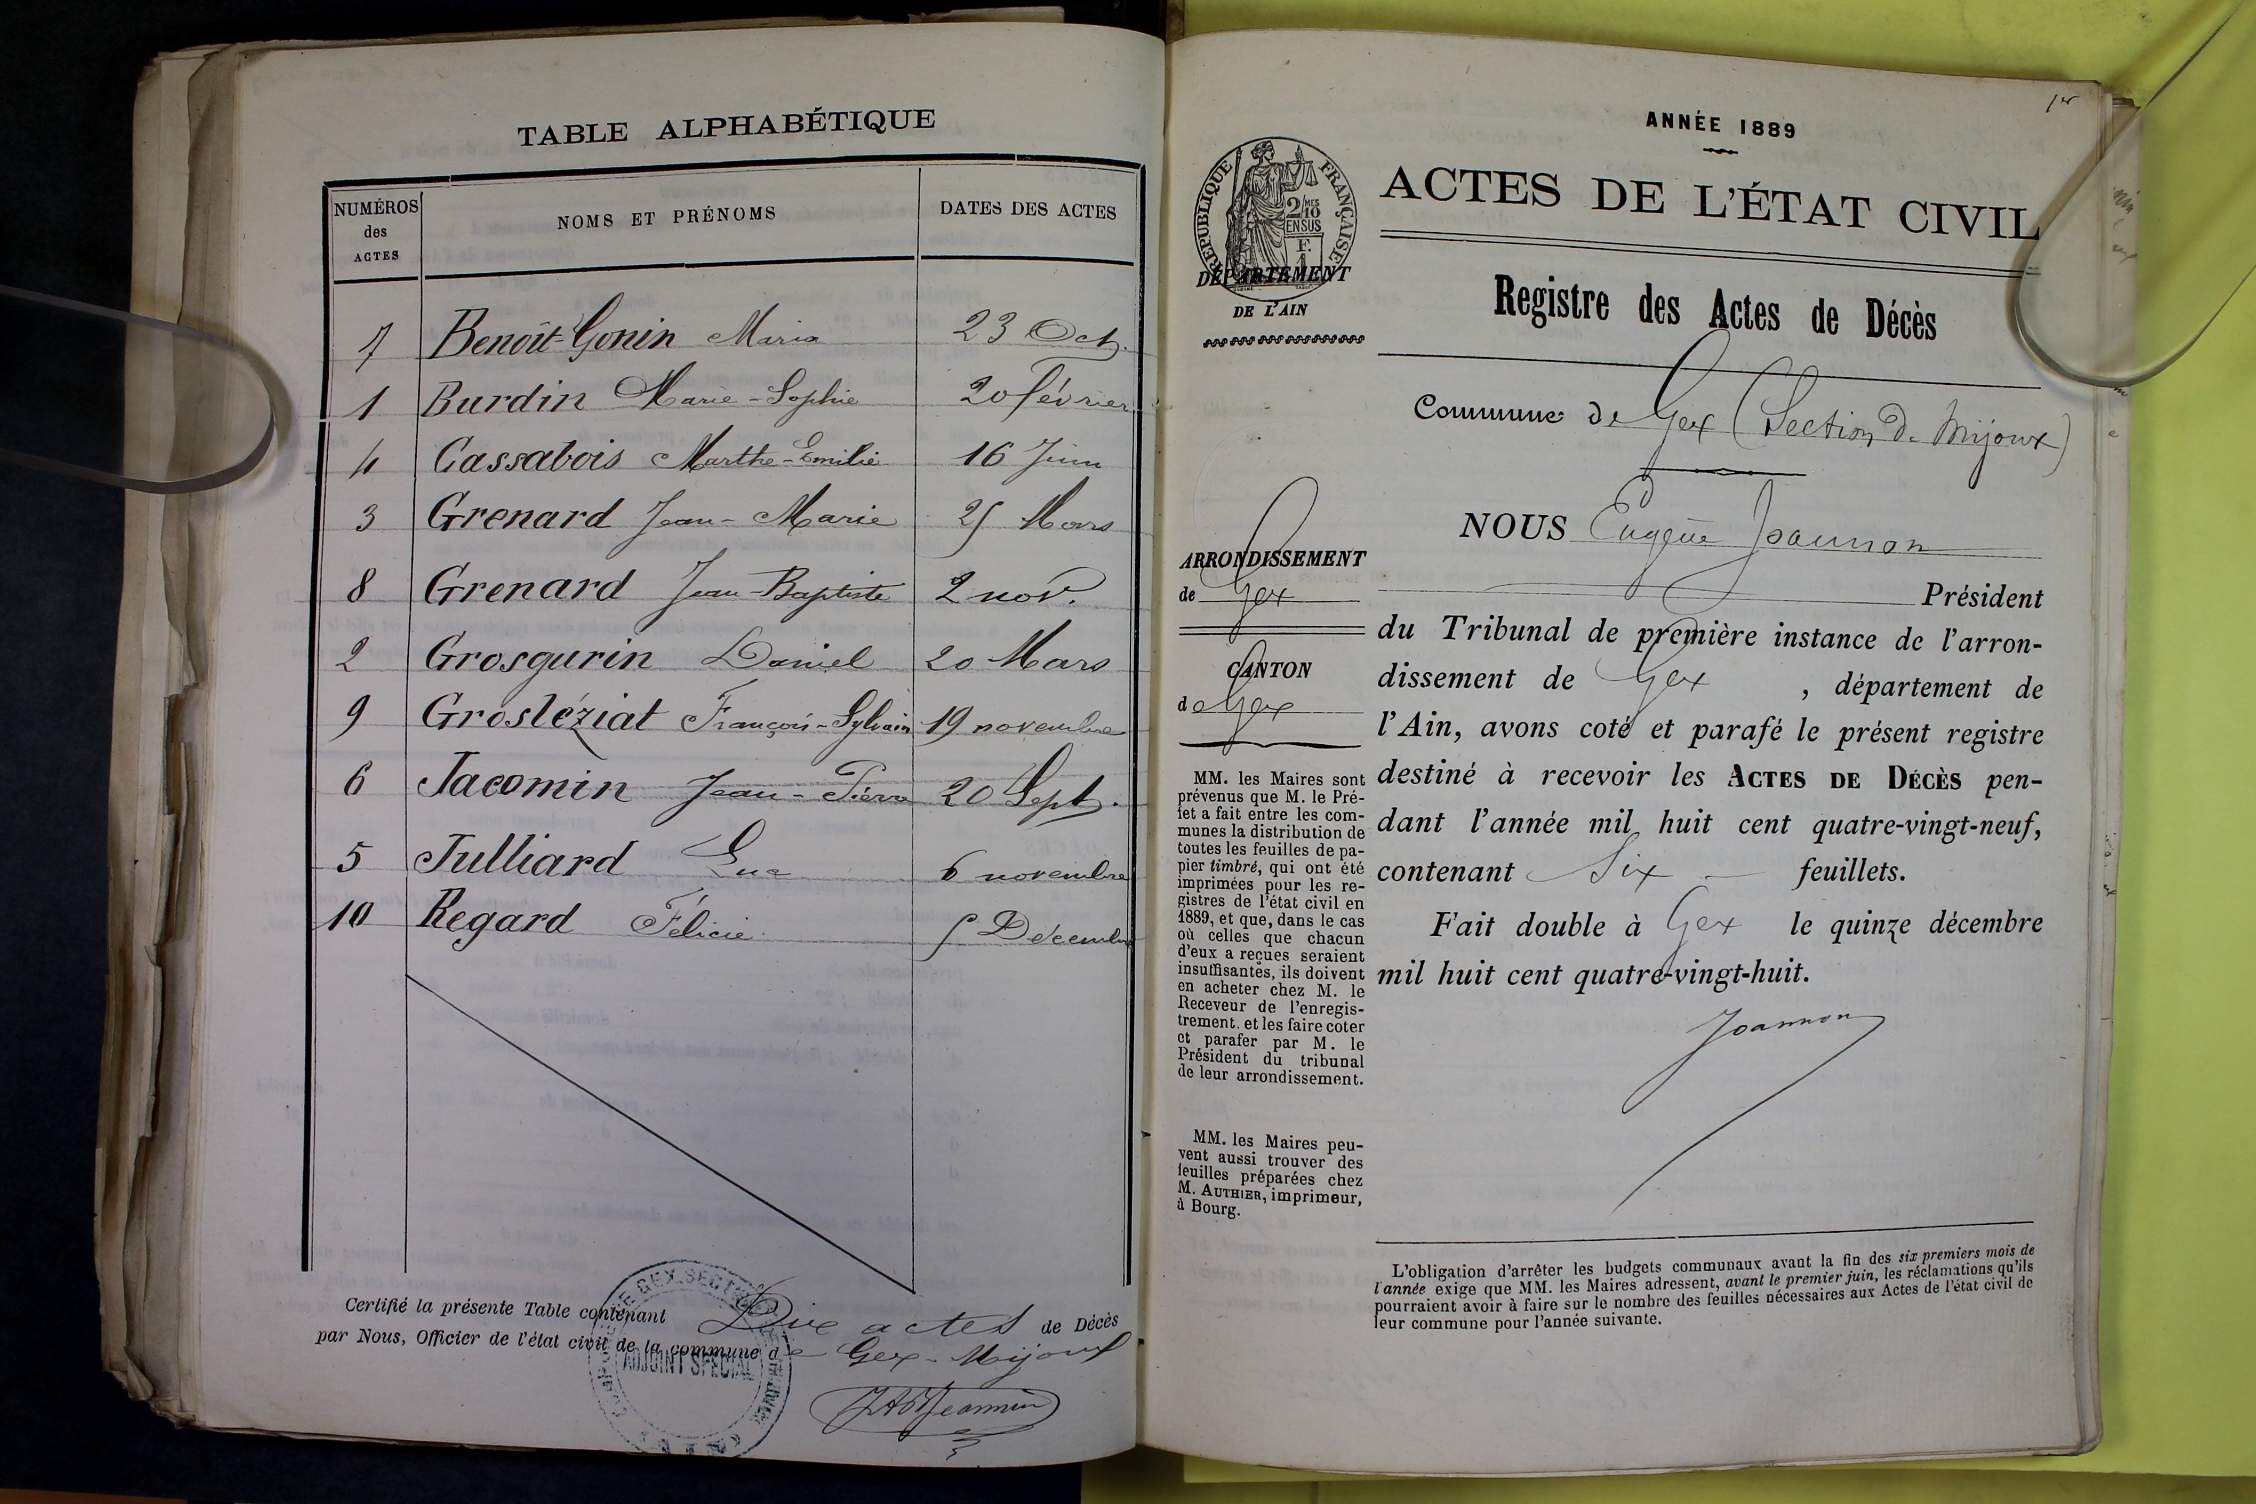 TABLE ALPHABÉTIQUE
NUMÉROS des ACTES NOMS ET PRÉNOMS DATES DES ACTES
7 Benoît-Gonin Maria 23 Oct.
1 Burdin Marie-Sophie 20 février
4 Cassabois Marthe-Emilie 16 Juin
3 Grenard Jean-Marie 25 Mars
8 Grenard Jean-Baptiste 2 nov.
2 Grosgurin Daniel 20 Mars
9 Grosléziat François-Sylvain 19 novembre
6 Jacomin Jean-Pierre 20 Sept.
5 Julliard Luc 6 novembre
10 Regard Félicie 5 Décembre
Certifié la présente Table contenant Dix actes de Décès
par Nous, Officier de l'état civil de la commune de Gex-Mijoux
ADJOINT SPÉCIAL
1er
ANNÉE 1889
ACTES DE L'ÉTAT CIVIL
RÉPUBLIQUE FRANÇAISE
2/10 MES
EN SUS
F.
1
DÉPARTEMENT
DE L'AIN
Registre des Actes de Décès
Commune de Gex (Section de Mijoux)
ARRONDISSEMENT
de Gex
CANTON
de Gex
MM. les Maires sont
prévenus que M. le Pré-
fet a fait entre les com-
munes la distribution de
toutes les feuilles de pa-
pier timbré, qui ont été
imprimées pour les re-
gistres de l'état civil en
1889, et que, dans le cas
où celles que chacun
d'eux a reçues seraient
insuffisantes, ils doivent
en acheter chez M. le
Receveur de l'enregis-
trement. et les faire coter
et parafer par M. le
Président du tribunal
de leur arrondissement.
MM. les Maires peu-
vent aussi trouver des
feuilles préparées chez
M. AUTHIER, imprimeur,
à Bourg.
NOUS Eugène Joannon
Président
du Tribunal de première instance de l'arron-
dissement de Gex , département de
l'Ain, avons coté et parafé le présent registre
destiné à recevoir les ACTES DE DÉCÈS pen-
dant l'année mil huit cent quatre-vingt-neuf,
contenant Six feuillets.
Fait double à Gex le quinze décembre
mil huit cent quatre-vingt-huit.
Joannon
L'obligation d'arrêter les budgets communaux avant la fin des six premiers mois de
l'année exige que MM. les Maires adressent, avant le premier juin, les réclamations qu'ils
pourraient avoir à faire sur le nombre des feuilles nécessaires aux Actes de l'état civil de
leur commune pour l'année suivante.